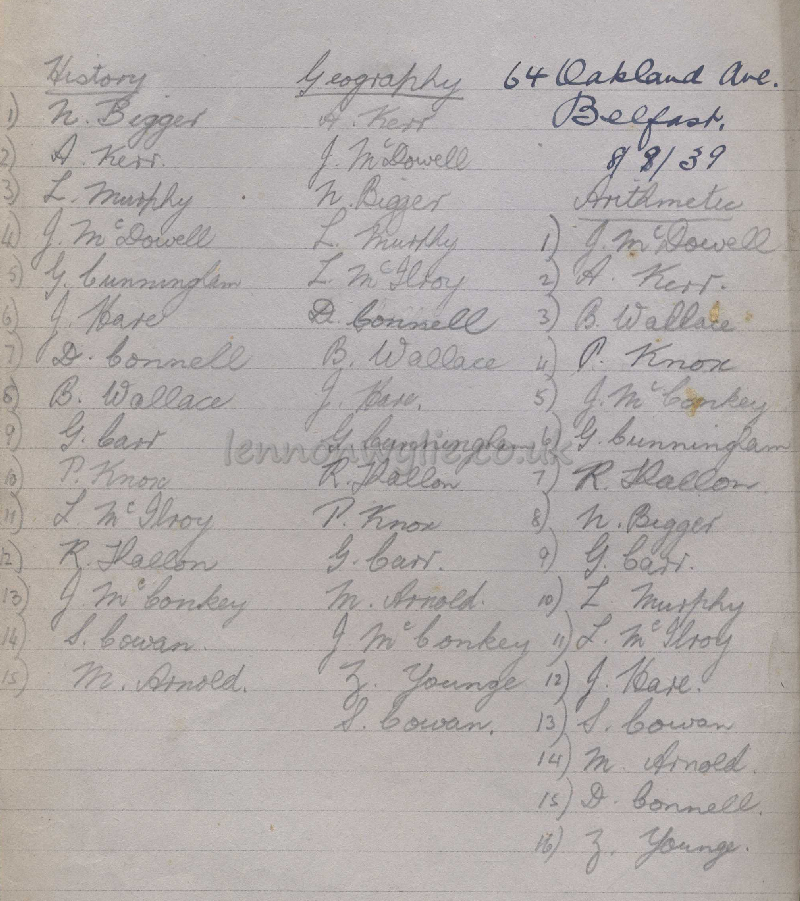 History
1) N. Bigger
2) A. Kerr.
3) L. Murphy
4) J. McDowell
5) G. Cunningham
6) J. Hare
7) D. Connell
8) B. Wallace
9) G. Carr
10) P. Knox
11) L McIlroy
12) R. Hallon
13) J McConkey
14) S. Cowan.
15) M. Arnold.
Geography
A. Kerr
J. McDowell
N. Bigger
L. Murphy
L McIlroy
D. Connell
B. Wallace
J. Hare.
G Cunningham
R. Hallon
P. Knox
G. Carr.
M. Arnold.
J McConkey
Z. Younge
S. Cowan.
64 Oakland Ave.
Belfast.
8/8/39
Arithmetic
1) J. McDowell
2) A. Kerr.
3) B. Wallace
4) P. Knox
5) J. McConkey
6) G. Cunningham
7) R. Hallon.
8) N. Bigger
9) G. Carr.
10) L Murphy
11) L. McIlroy
12) J. Hare.
13) S. Cowan
14) M. Arnold.
15) D. Connell.
16) Z. Younge.
lennonwylie.co.uk